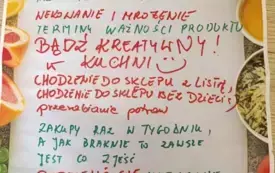 NEKONANIE I MROŻENIE
TERMINY WAŻNOŚCI PRODUKTU
BĄDŹ KREATYWNY!
W KUCHNI
CHODZENIE DO SKLEPU Z LISTĄ,
CHODZENIE DO SKLEPU BEZ DZIECI;
przerabianie potraw
ZAKUPY RAZ W TYGODNIU,
A JAK BRAKNIE TO ZAWSZE
JEST CO ZJEŚĆ